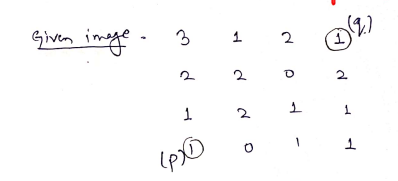 Given image - 3 1 2 1 (q)
2 2 0 2
1 2 1 1
(p) 1 0 1 1